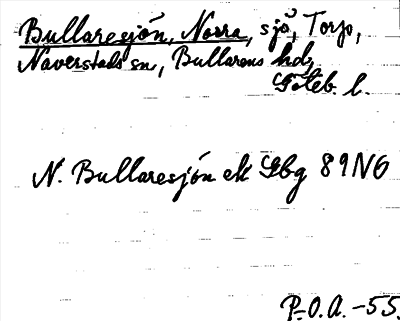 Bullaresjön, Norra, sjö, Torp,
Naverstads sn, Bullarens hd,
Göteb. l.
N. Bullaresjön ek Gbg 89NG
P.O.A. -55.